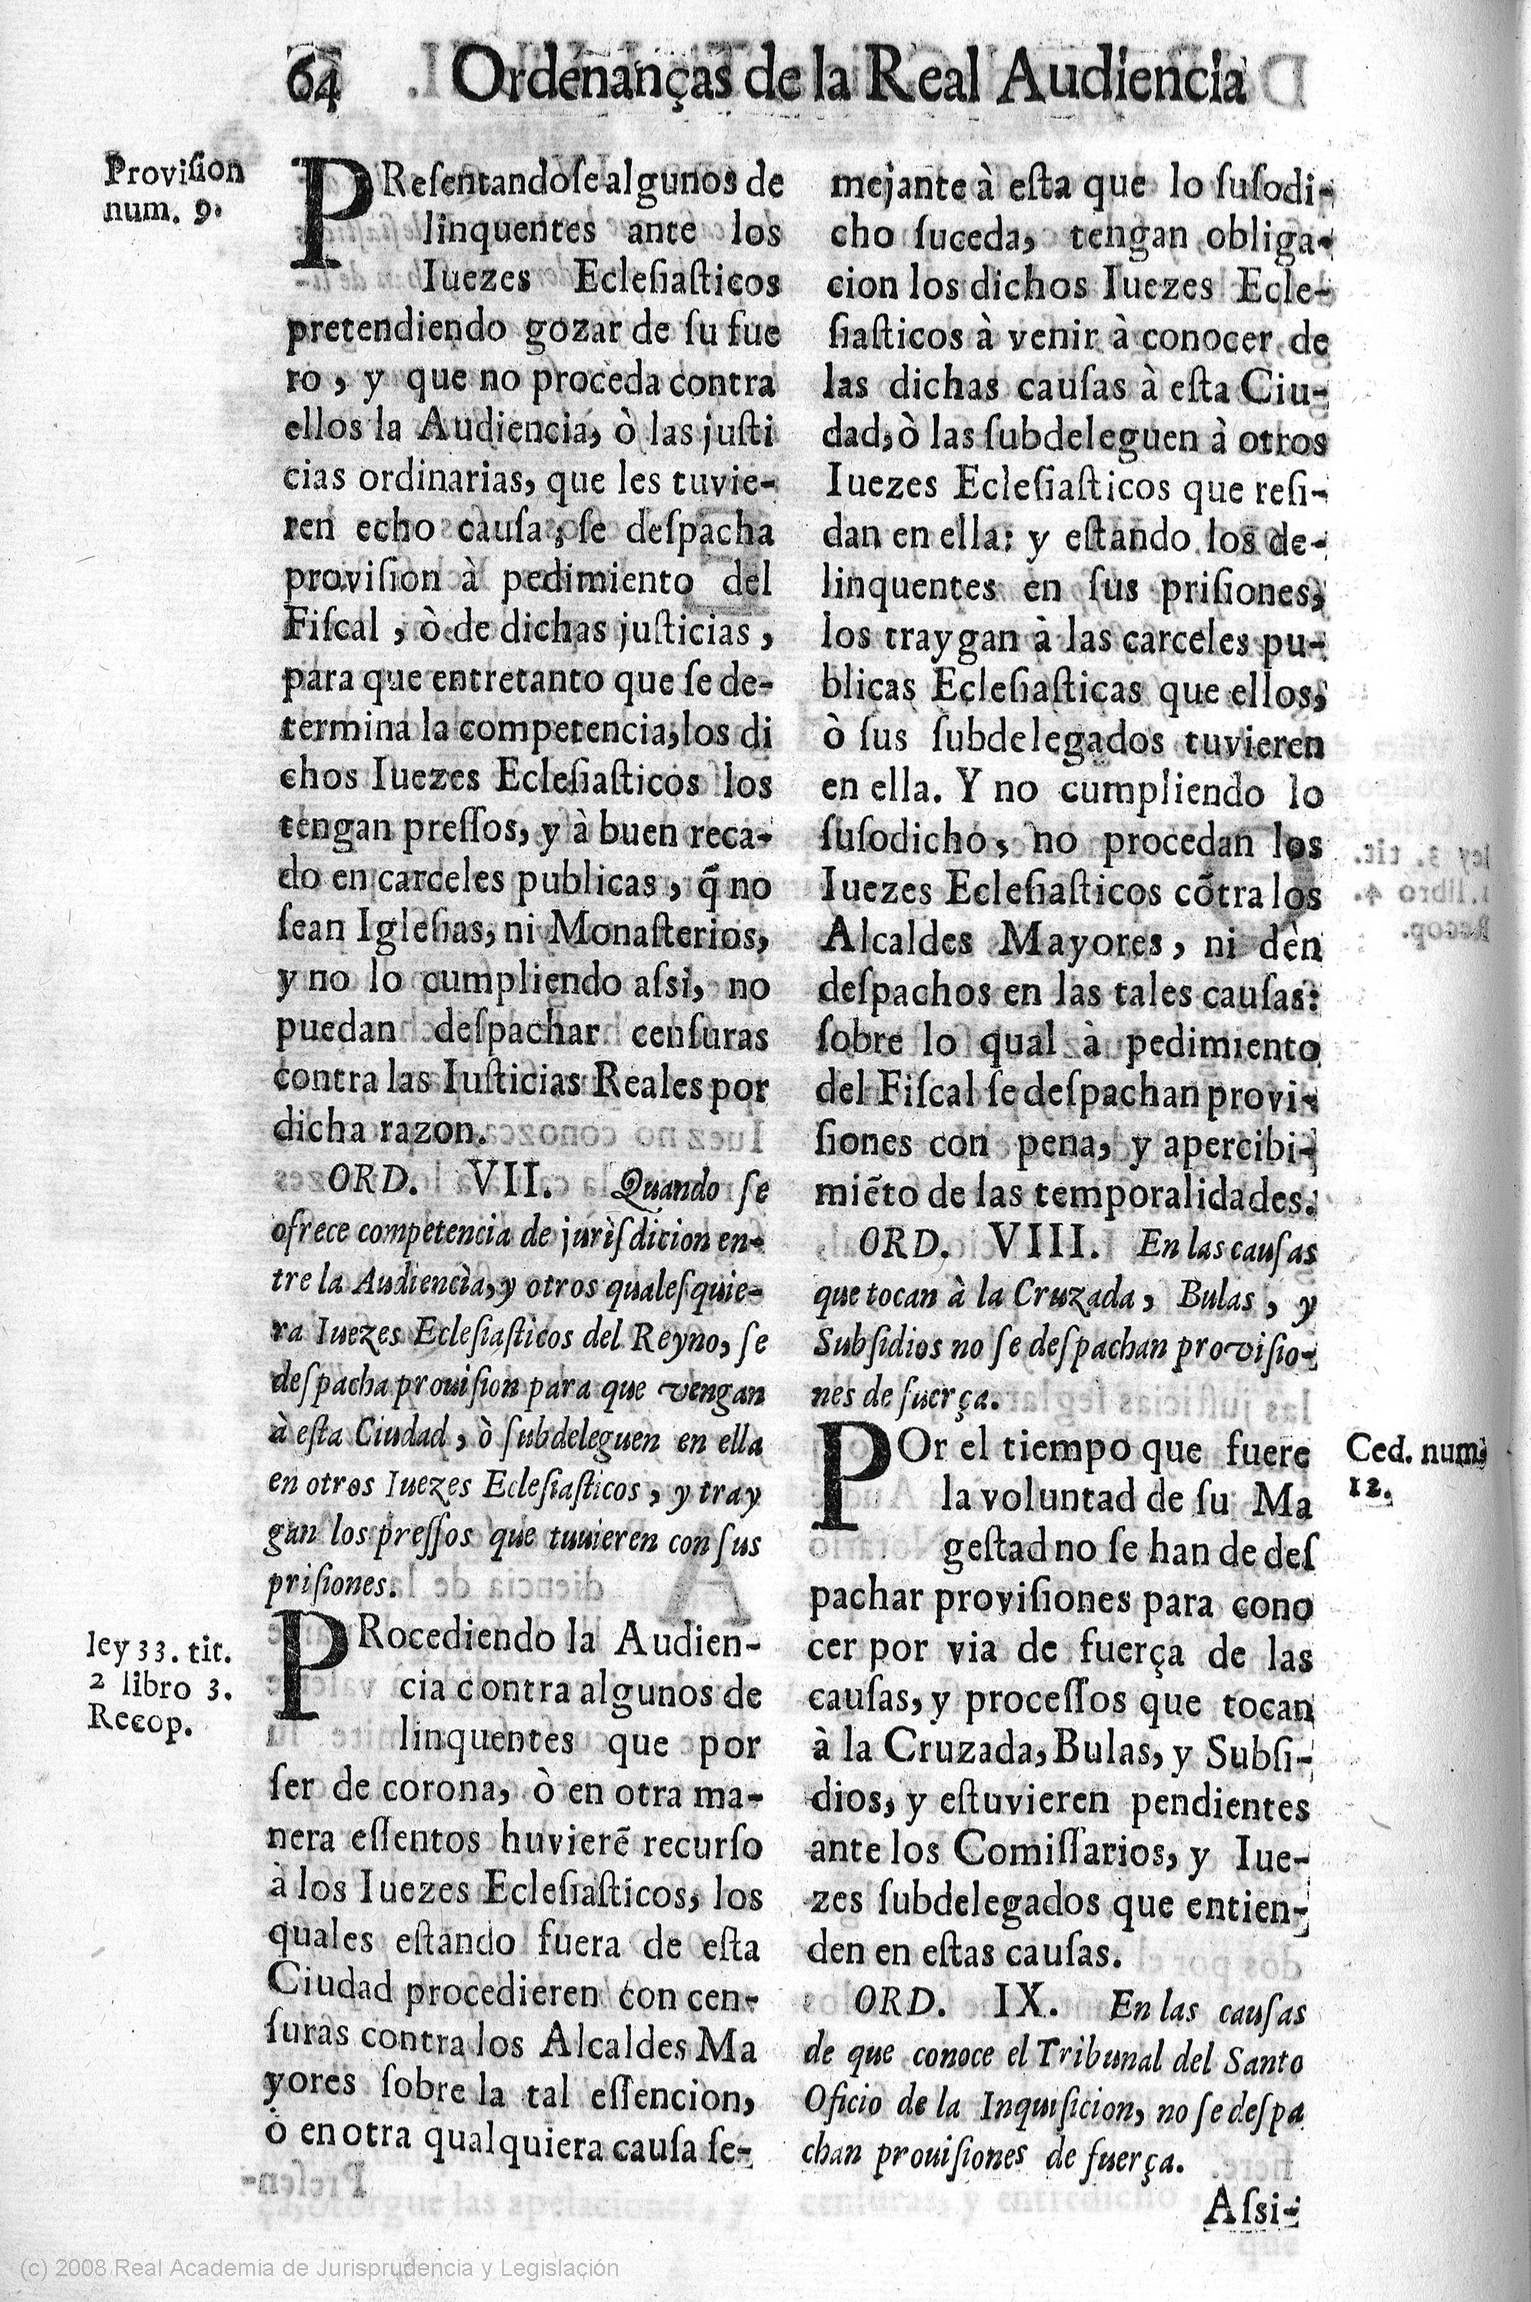 64 Ordenanças de la Real Audiencia
Provision
num. 9.
PReſentandoſe algunos de
linquentes ante los
Iuezes Eclesiaſticos
pretendiendo gozar de ſu fue
ro, y que no proceda contra
ellos la Audiencia, ò las juſti
cias ordinarias, que les tuvie-
ren echo cauſa, ſe deſpacha
proviſion à pedimiento del
Fiſcal, ò de dichas juſticias,
para que entretanto que ſe de-
termina la competencia, los di
chos Iuezes Eclesiaſticos los
tengan preſſos, y à buen reca-
do en carceles publicas, q̃ no
ſean Iglesias, ni Monaſterios,
y no lo cumpliendo aſsi, no
puedan deſpachar cenſuras
contra las Iuſticias Reales por
dicha razon.
ORD. VII. Quando ſe
ofrece competencia de juriſdicion en-
tre la Audiencia, y otros qualeſquie-
ra Iuezes Ecleſiaſticos del Reyno, ſe
deſpacha prouiſion para que vengan
à eſta Ciudad, ò ſubdeleguen en ella
en otros Iuezes Ecleſiaſticos, y tray
gan los preſſos que tuuieren con ſus
priſiones.
ley 33. tit.
2 libro 3.
Recop.
PRocediendo la Audien-
cia contra algunos de
linquentes que por
ſer de corona, ò en otra ma-
nera eſſentos huvierẽ recurſo
à los Iuezes Ecleſiaſticos, los
quales eſtando fuera de eſta
Ciudad procedieren con cen-
ſuras contra los Alcaldes Ma
yores ſobre la tal eſſencion,
ò en otra qualquiera cauſa ſe-
mejante à eſta que lo ſuſodi-
cho ſuceda, tengan obliga-
cion los dichos Iuezes Ecle-
ſiaſticos à venir à conocer de
las dichas cauſas à eſta Ciu-
dad, ò las ſubdeleguen à otros
Iuezes Ecleſiaſticos que reſi-
dan en ella: y eſtando los de-
linquentes en ſus priſiones,
los traygan à las carceles pu-
blicas Ecleſiaſticas que ellos,
ò ſus ſubdelegados tuvieren
en ella. Y no cumpliendo lo
ſuſodicho, no procedan los
Iuezes Ecleſiaſticos cõtra los
Alcaldes Mayores, ni dèn
deſpachos en las tales cauſas:
ſobre lo qual à pedimiento
del Fiſcal ſe deſpachan provi-
ſiones con pena, y apercibi-
miẽto de las temporalidades.
ORD. VIII. En las cauſas
que tocan à la Cruzada, Bulas, y
Subſidios no ſe deſpachan proviſio-
nes de fuerça.
Ced. num.
12.
POr el tiempo que fuere
la voluntad de ſu Ma
geſtad no ſe han de deſ
pachar proviſiones para cono
cer por via de fuerça de las
cauſas, y proceſſos que tocan
à la Cruzada, Bulas, y Subſi-
dios, y eſtuvieren pendientes
ante los Comiſſarios, y Iue-
zes ſubdelegados que entien-
den en eſtas cauſas.
ORD. IX. En las cauſas
de que conoce el Tribunal del Santo
Oficio de la Inquiſicion, no ſe deſpa
chan prouiſiones de fuerça.
Aſsi-
(c) 2008 Real Academia de Jurisprudencia y Legislación